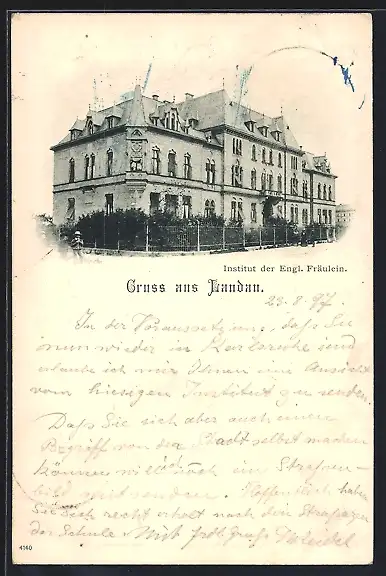 Institut der Engl. Fräulein.
Gruss aus Landau.
23.8.97.
In der Voraussetzung, daß Sie
nun wieder in Karlsruhe sind
erlaube ich mir Ihnen eine Ansicht
vom hiesigen Institut zu senden.
Daß Sie sich aber auch einen
Begriff von der Stadt selbst machen
können will ich noch ein Straßen-
bild mitsenden. Hoffentlich haben
Sie sich recht erholt nach den Strapazen
der Schule. Mit frdl. Gruß
4140